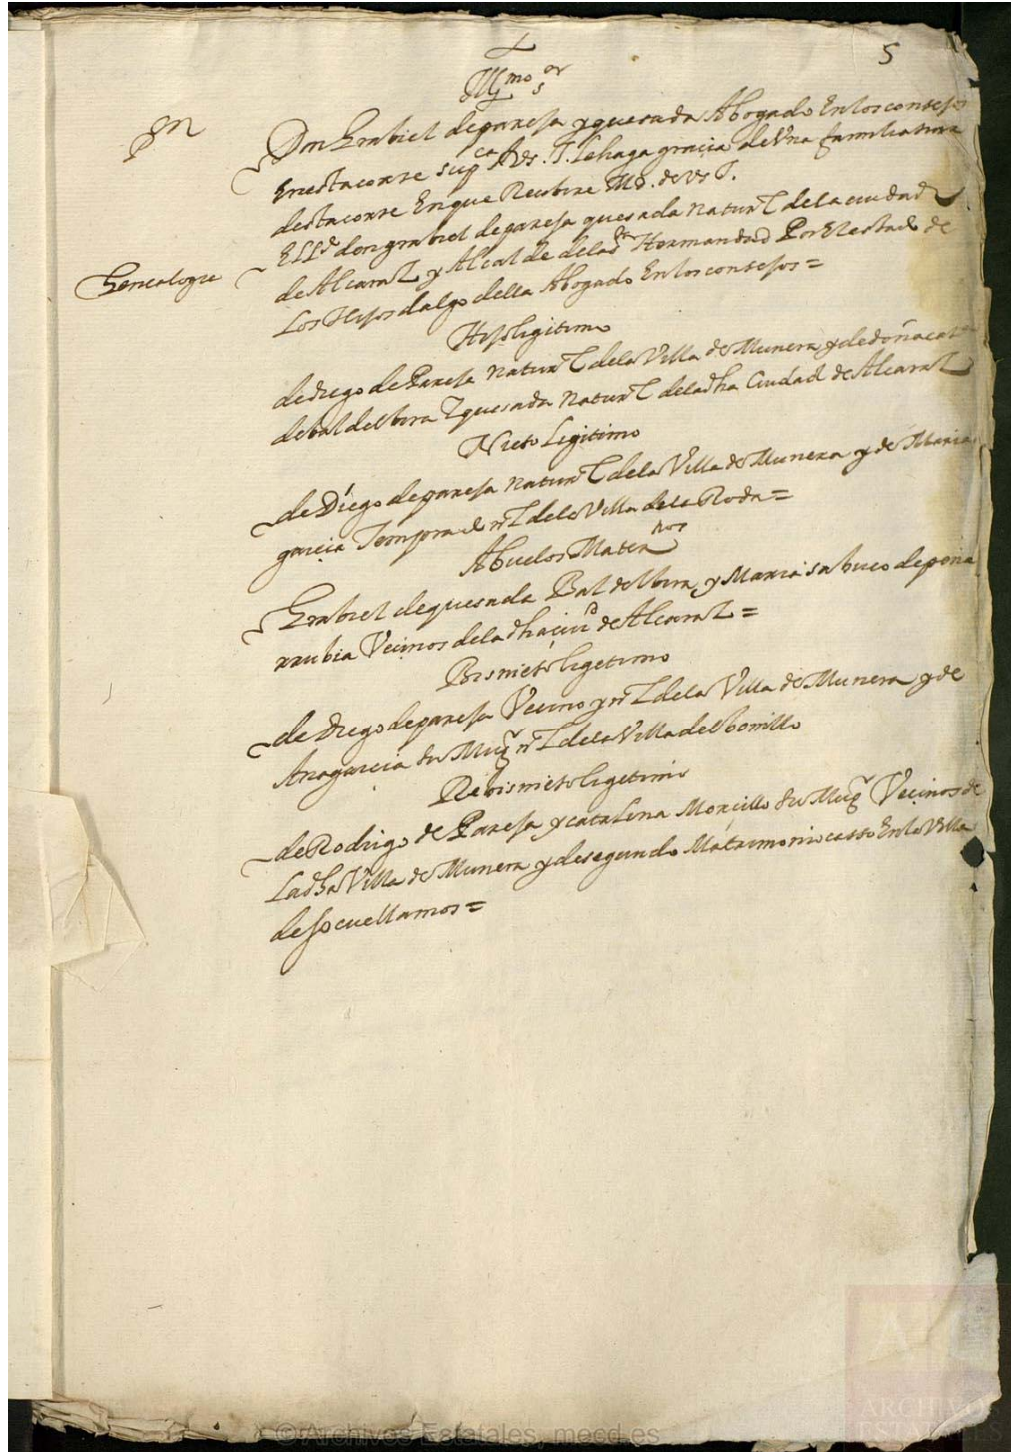 5
Illmo Sor
Don Grabiel de pareja y quesada Abogado En los consejos
En esta corte supca A Vs. I. le haga graçia de Vna familiatura
desta corte En que Recibira Md. de vs I.
Genealogia
El Ld don grabiel de pareja quesada natural de la ciudad
de Alcaraz y Alcalde de la sta Hermandad Por El estado de
Los Hijos dalgo della Abogado En los consejos =
Hijo ligitimo
de diego de Pareja natural de la Villa de Munera y de doña cat
de bal delbira I quesada natural de la dha Ciudad de Alcaraz
Nieto Legitimo
de Diego de pareja natural de la Villa de Munera y de Maria
garcia nl de la Villa de la Roda =
Abuelos Maternos
Grabiel de quesada Bal delbira y Maria sabuco de peña
rrubia Veçinos de la dha çiud de Alcaraz =
Bisnieto ligetimo
de diego de pareja Vecino y nl de la Villa de Munera y de
Ana garcia su Mug nl de la Villa del bonillo
Rebisnieto ligetimo
de Rodrigo de Pareja y catalina Morcillo su Mug Veçinos de
La dha Villa de Munera y de segundo Matrimonio casso En la Villa
de socuellamos =
© Archivos Estatales, mecd.es
ARCHIVOS
ESTATALES